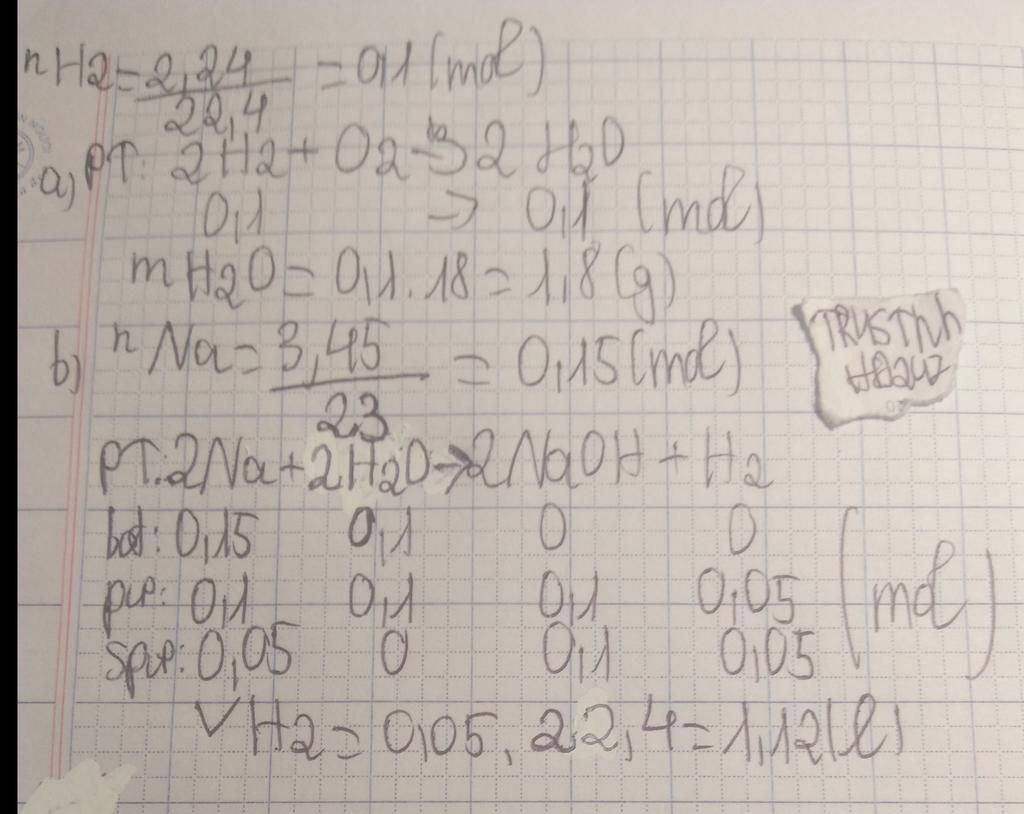 nH2 = 2,24 / 22,4 = 0,1 (mol)
a) PT: 2H2 + O2 → 2 H2O
0,1 → 0,1 (mol)
mH2O = 0,1 . 18 = 1,8 (g)
b) nNa = 3,45 / 23 = 0,15 (mol)
PT: 2Na + 2H2O → 2NaOH + H2
bđ: 0,15 0,1 0 0
pư: 0,1 0,1 0,1 0,05 (mol)
spư: 0,05 0 0,1 0,05
VH2 = 0,05 . 22,4 = 1,12 (l)